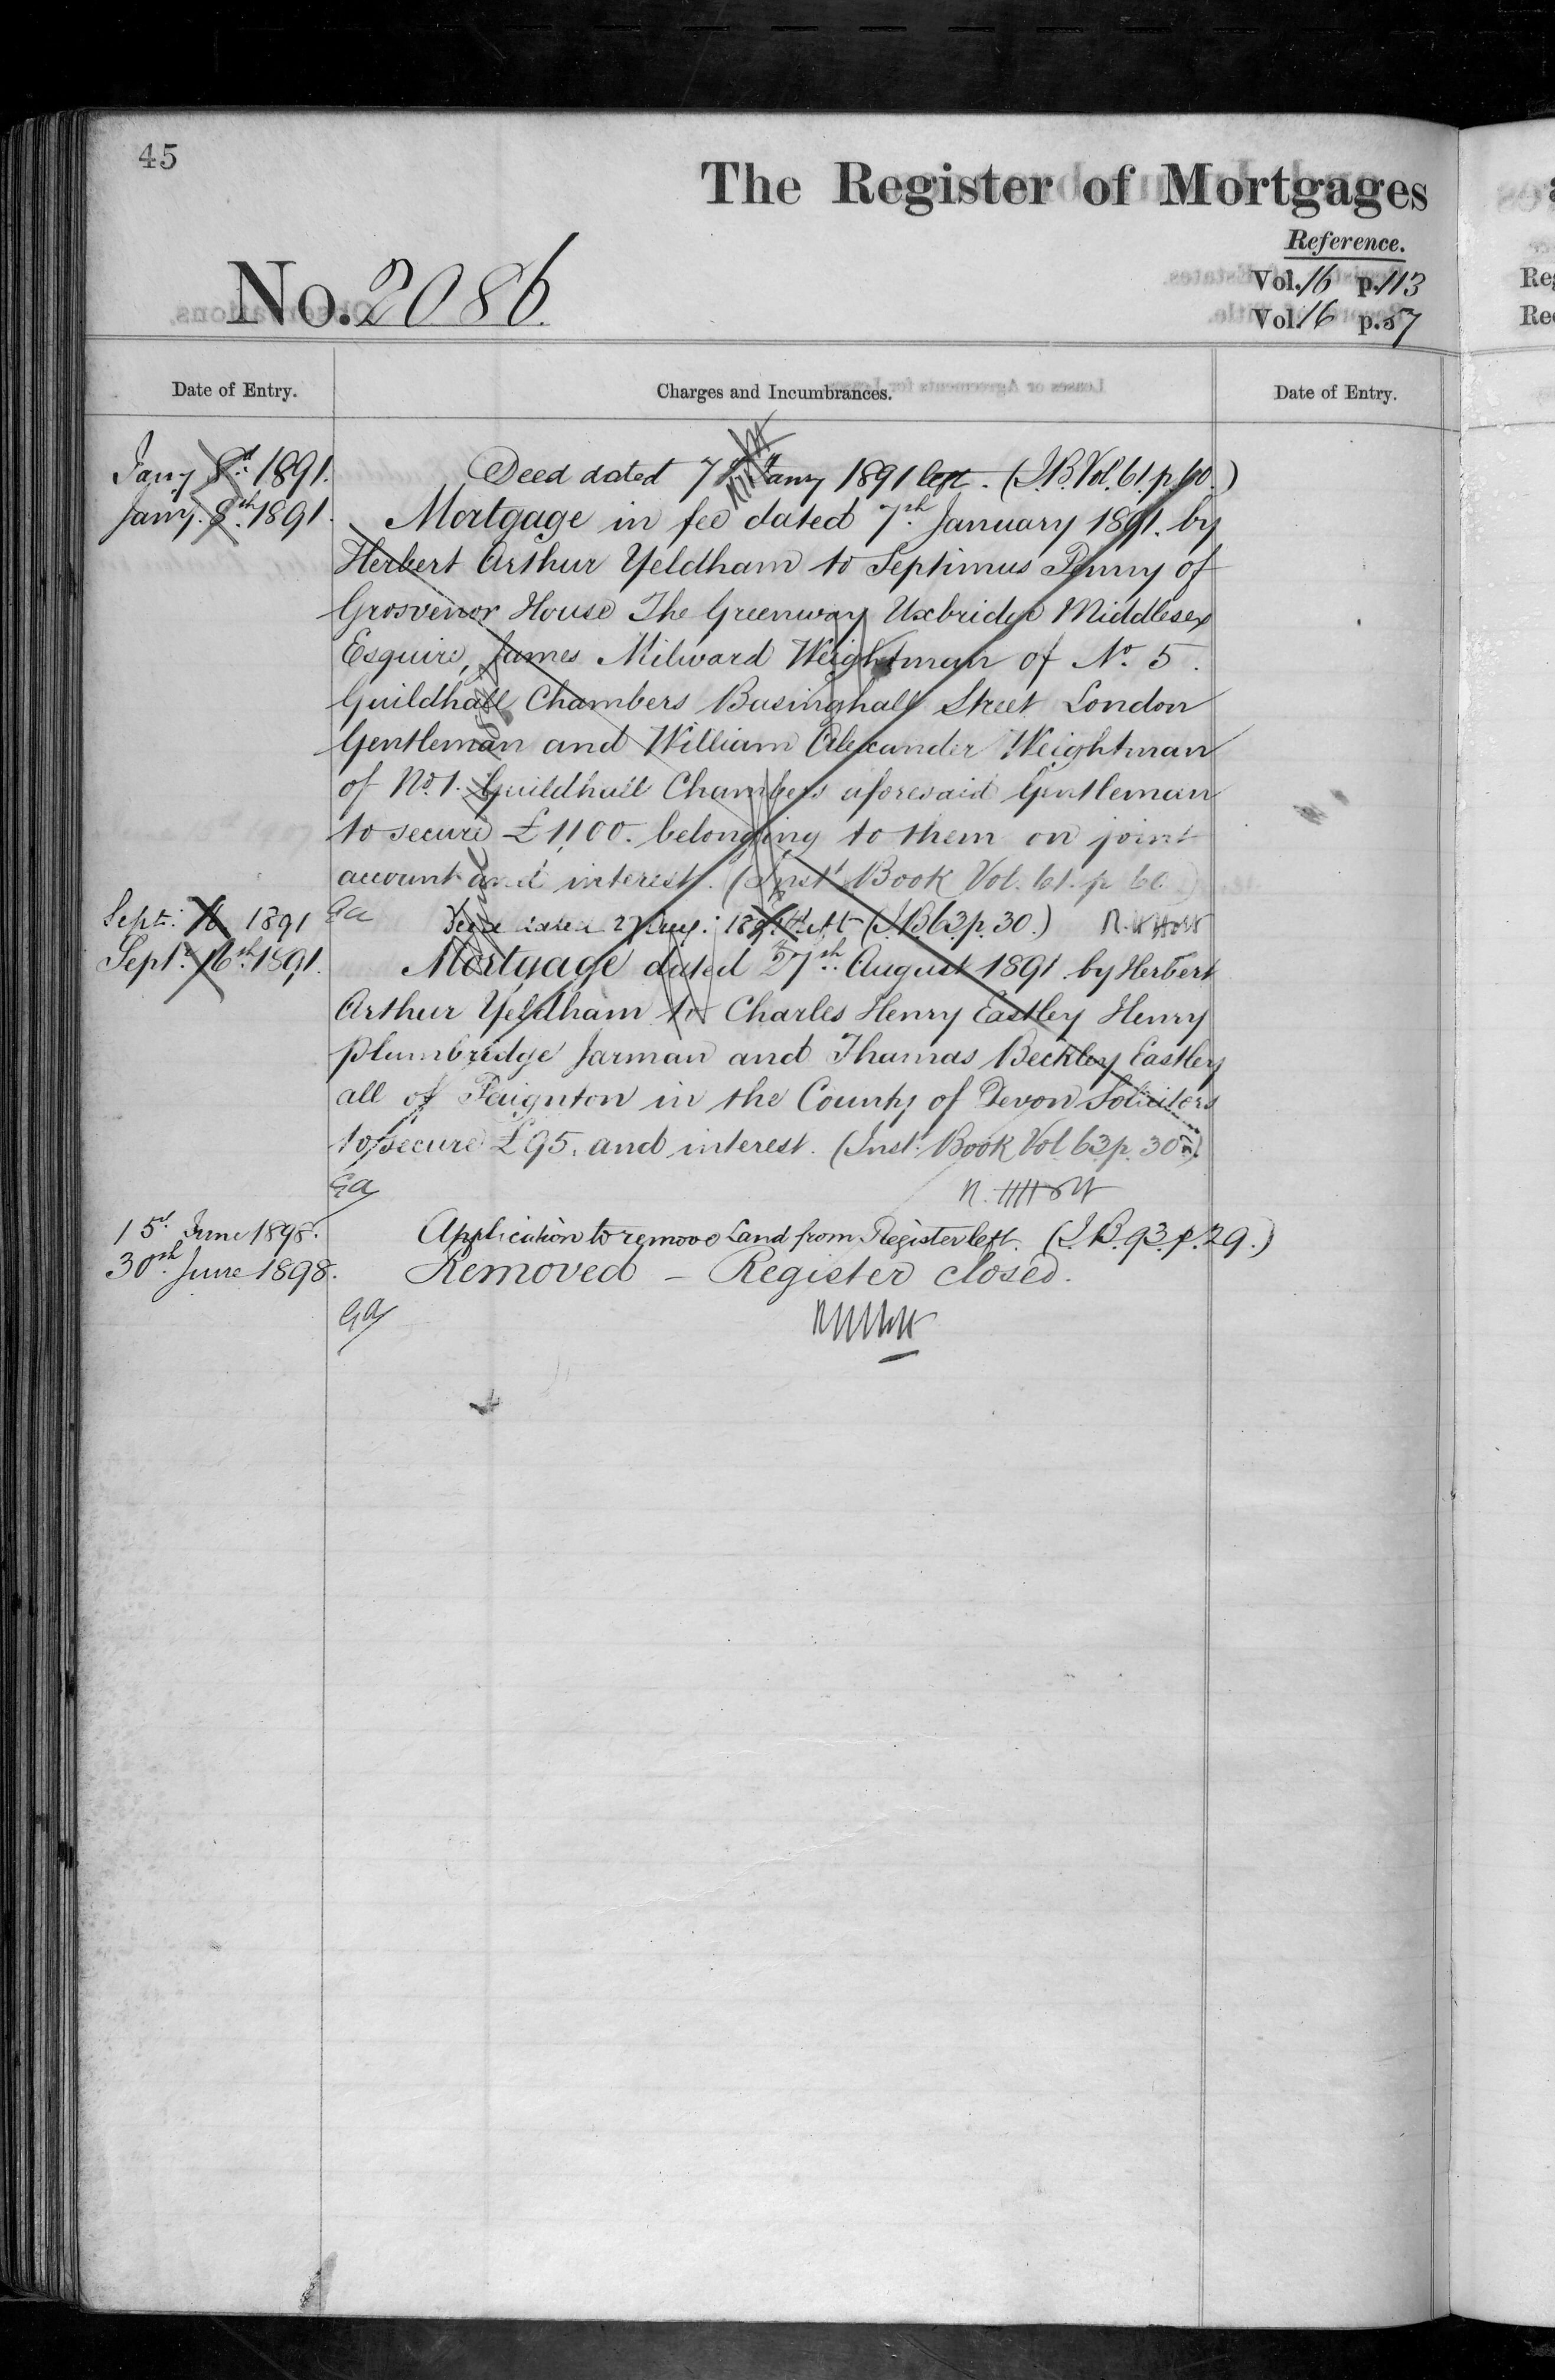 45
The Register of Mortgages
Reference.
No. 2086.
Vol. 16 p. 113
Vol. 16 p. 57
Date of Entry.
Charges and Incumbrances.
Date of Entry.
Jany 8th 1891. Deed dated 7th Jany 1891 left. (I.B. Vol. 61. p. 60.)
Jany. 8th 1891. Mortgage in fee dated 7th January 1891. by
Herbert Arthur Yeldham to Septimus Penny of
Grosvenor House The Greenway Uxbridge Middlesex
Esquire, James Milward Weightman of No. 5.
Guildhall Chambers Basinghall Street London
Gentleman and William Alexander Weightman
of No. 1. Guildhall Chambers aforesaid Gentleman
to secure £1100. belonging to them on joint
account and interest. (Inst. Book Vol. 61. p 60.)
Sept: 16 1891 Ga Deed dated 27 Aug: 1891 left (I.B. 63. p. 30.)
Sept. 16th 1891. Mortgage dated 27th August 1891. by Herbert
Arthur Yeldham to Charles Henry Eastley Henry
Plumbridge Jarman and Thomas Beckley Eastley
all of Paignton in the County of Devon Solicitors
to secure £95. and interest. (Inst. Book Vol 63. p. 30.)
Ga
1st June 1898. Application to remove Land from Register left. (I.B. 93. p. 29.)
30th June 1898. Removed – Register closed.
Ga